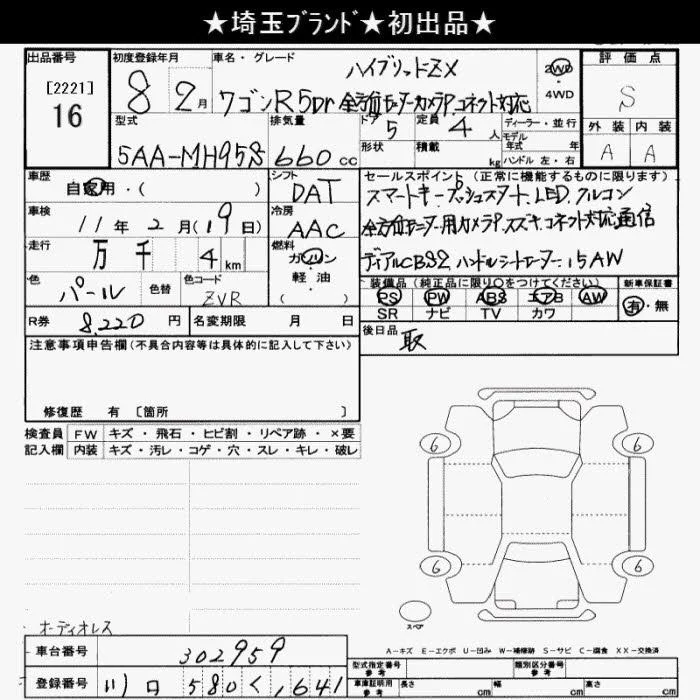 ★埼玉ﾌﾞﾗﾝﾄﾞ★初出品★
出品番号
[2221]
16
初度登録年月
8 2月
車名・グレード
ハイブリッドZX
ワゴンR 5Dr 全方位モニターカメラP.コネクト対応
2WD
・
4WD
評価点
S
外装 内装
A A
型式
5AA-MH95S
排気量
660 cc
ドア 5
形状
定員 4 人
積載 kg
ディーラー・並行
モデル
年式 年
ハンドル 左・右
車歴
自家用・( )
車検
11年2月(19日)
走行
万 千 4 km
色 パール
色替
色コード
ZVR
シフト
DAT
冷房
AAC
燃料
ガソリン
・
軽油
( )
セールスポイント (正常に機能するものに限ります)
スマートキー.プッシュスタート.LED.クルコン
全方位モニター用カメラP.スズキ.コネクト対応通信
ディアルCBS2 ハンドルシートヒーター.15AW
装備品 (純正品に限り○をつけてください)
PS PW ABS エアB AW
SR ナビ TV カワ
新車保証書
有・無
後日品 取
R券 8,220 円
名変期限 月 日
注意事項申告欄(不具合内容等は具体的に記入して下さい)
修復歴 有 [箇所 ]
検査員
記入欄
FW キズ・飛石・ヒビ割・リペア跡・×要
内装 キズ・汚レ・コゲ・穴・スレ・キレ・破レ
6 6
6 6
スペア
オーディオレス
A-キズ E-エクボ U-凹み W-補修跡 S-サビ C-腐食 XX-交換済
車台番号 302959
登録番号 川口 580 く 1641
型式指定番号
参考
類別区分番号
参考
車庫証明用
参考
長さ cm
幅 cm
高さ cm